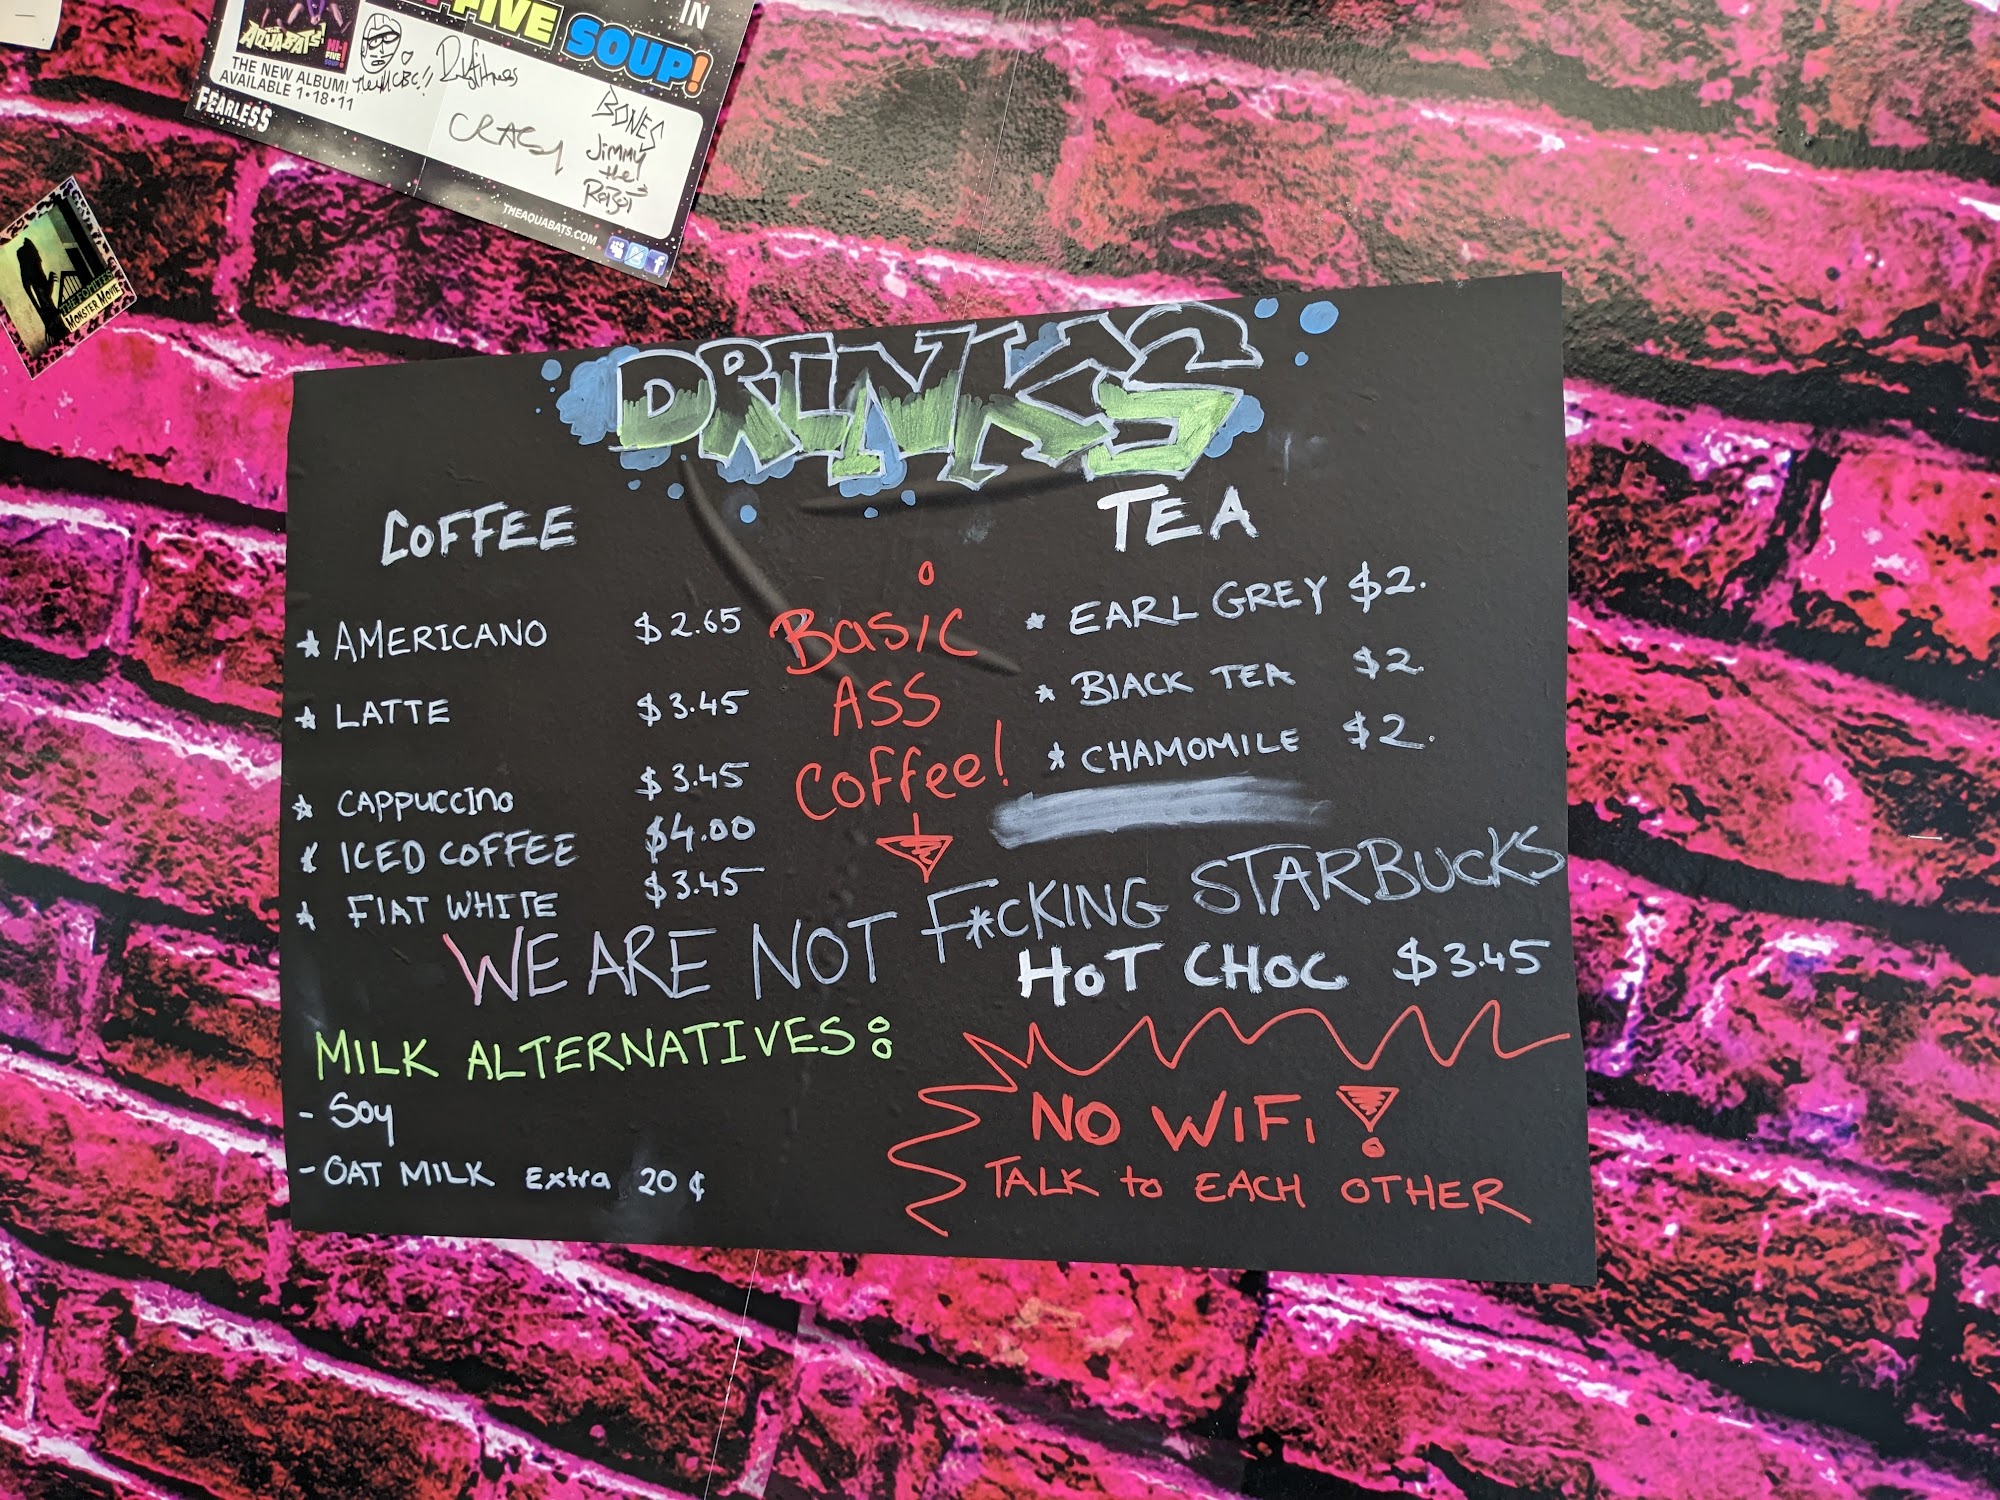 FIVE SOUP!
IN
THE AQUABATS!
HI-FIVE SOUP!
THE NEW ALBUM!
AVAILABLE 1•18•11
FEARLESS
CRASH
BONES
Jimmy
the
RoBoT
THEAQUABATS.COM
MONSTER MOVIE
DRINKS
COFFEE
★ AMERICANO $2.65
★ LATTE $3.45
★ CAPPUCCINO $3.45
★ ICED COFFEE $4.00
★ FLAT WHITE $3.45
Basic
ASS
Coffee!
TEA
★ EARL GREY $2.
★ BLACK TEA $2.
★ CHAMOMILE $2.
WE ARE NOT F*CKING STARBUCKS
HOT CHOC $3.45
MILK ALTERNATIVES:
- Soy
- OAT MILK Extra 20¢
NO WIFI!
TALK to EACH OTHER